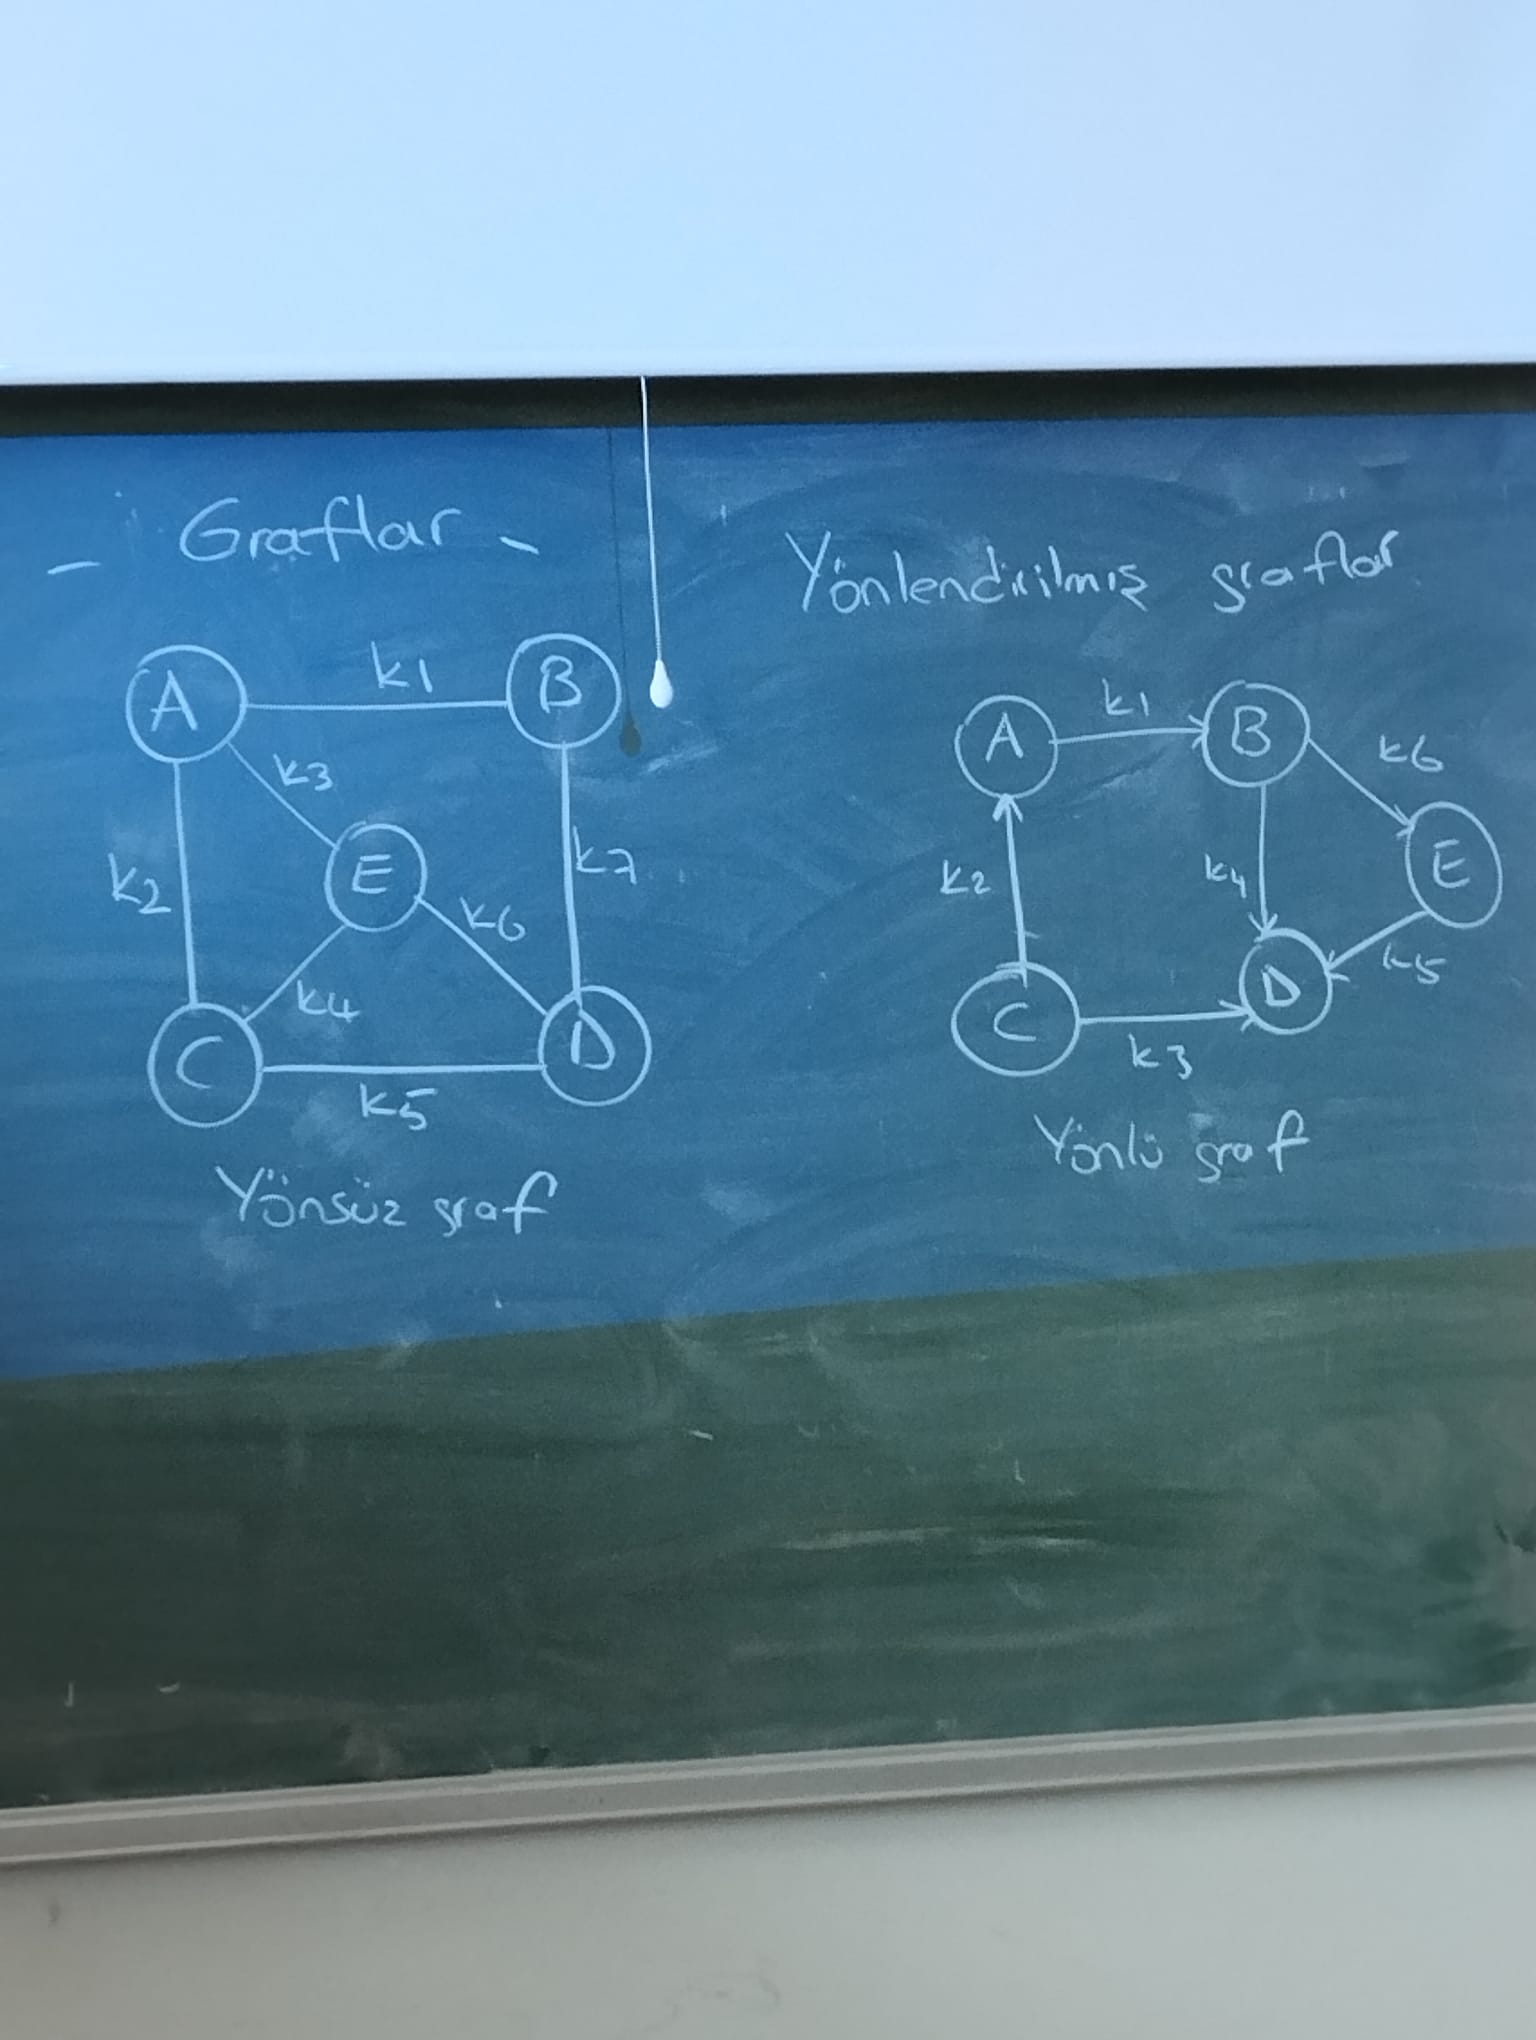 - Graflar -
A k1 B
k3
k2 E k7
k6
k4
C D
k5
Yönsüz graf
Yönlendirilmiş graflar
A k1 B k6
k2 k4 E
k5
C D
k3
Yönlü graf